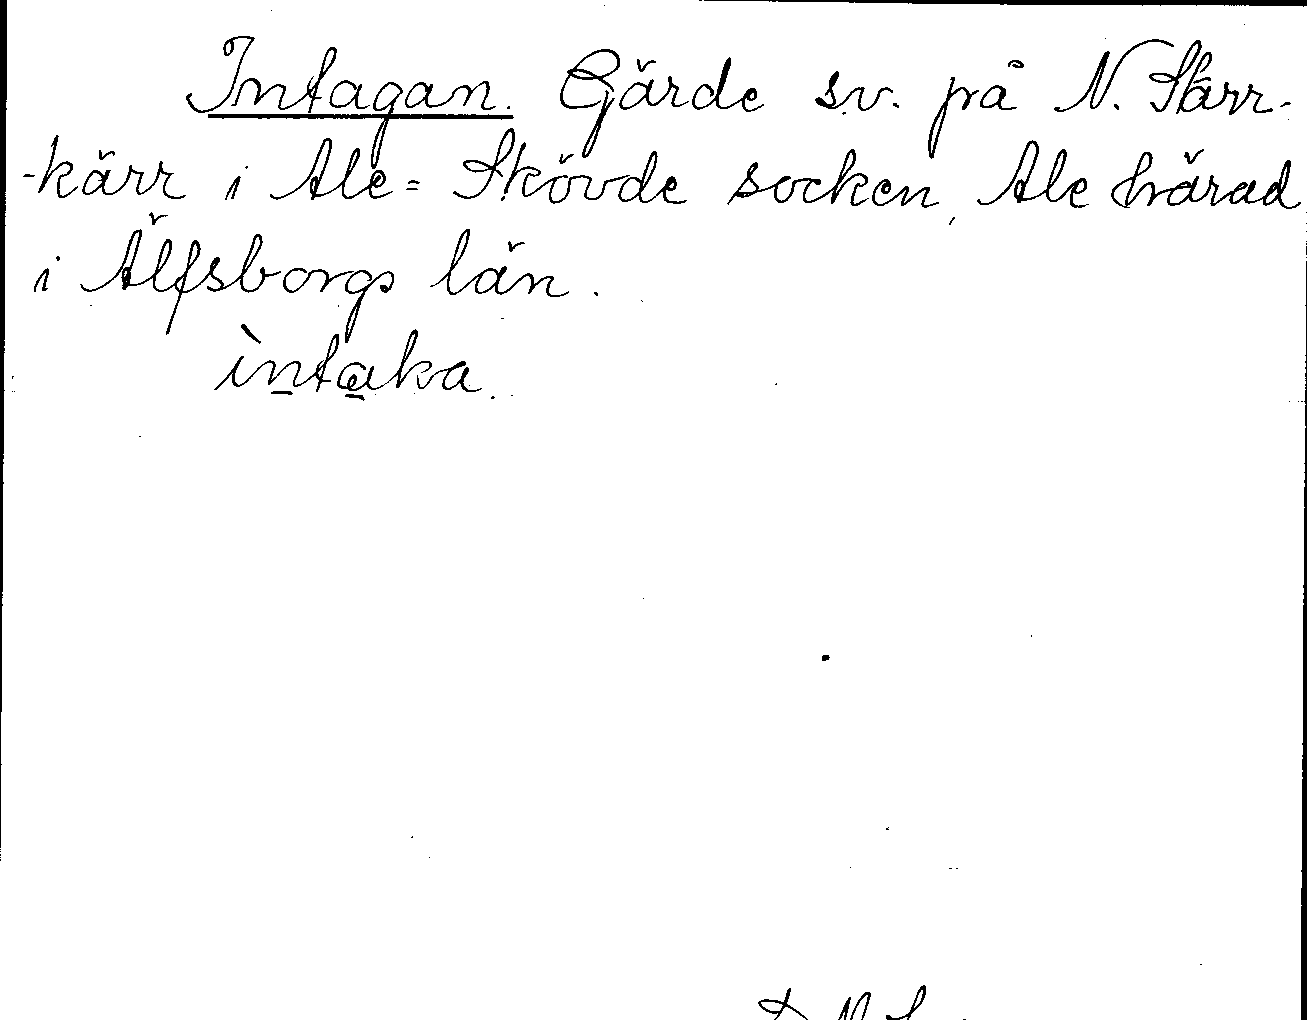 Intagan. Gärde sv. på N. Starr-
-kärr i Ale=Skövde socken, Ale härad
i Älfsborgs län.
ìntaka.